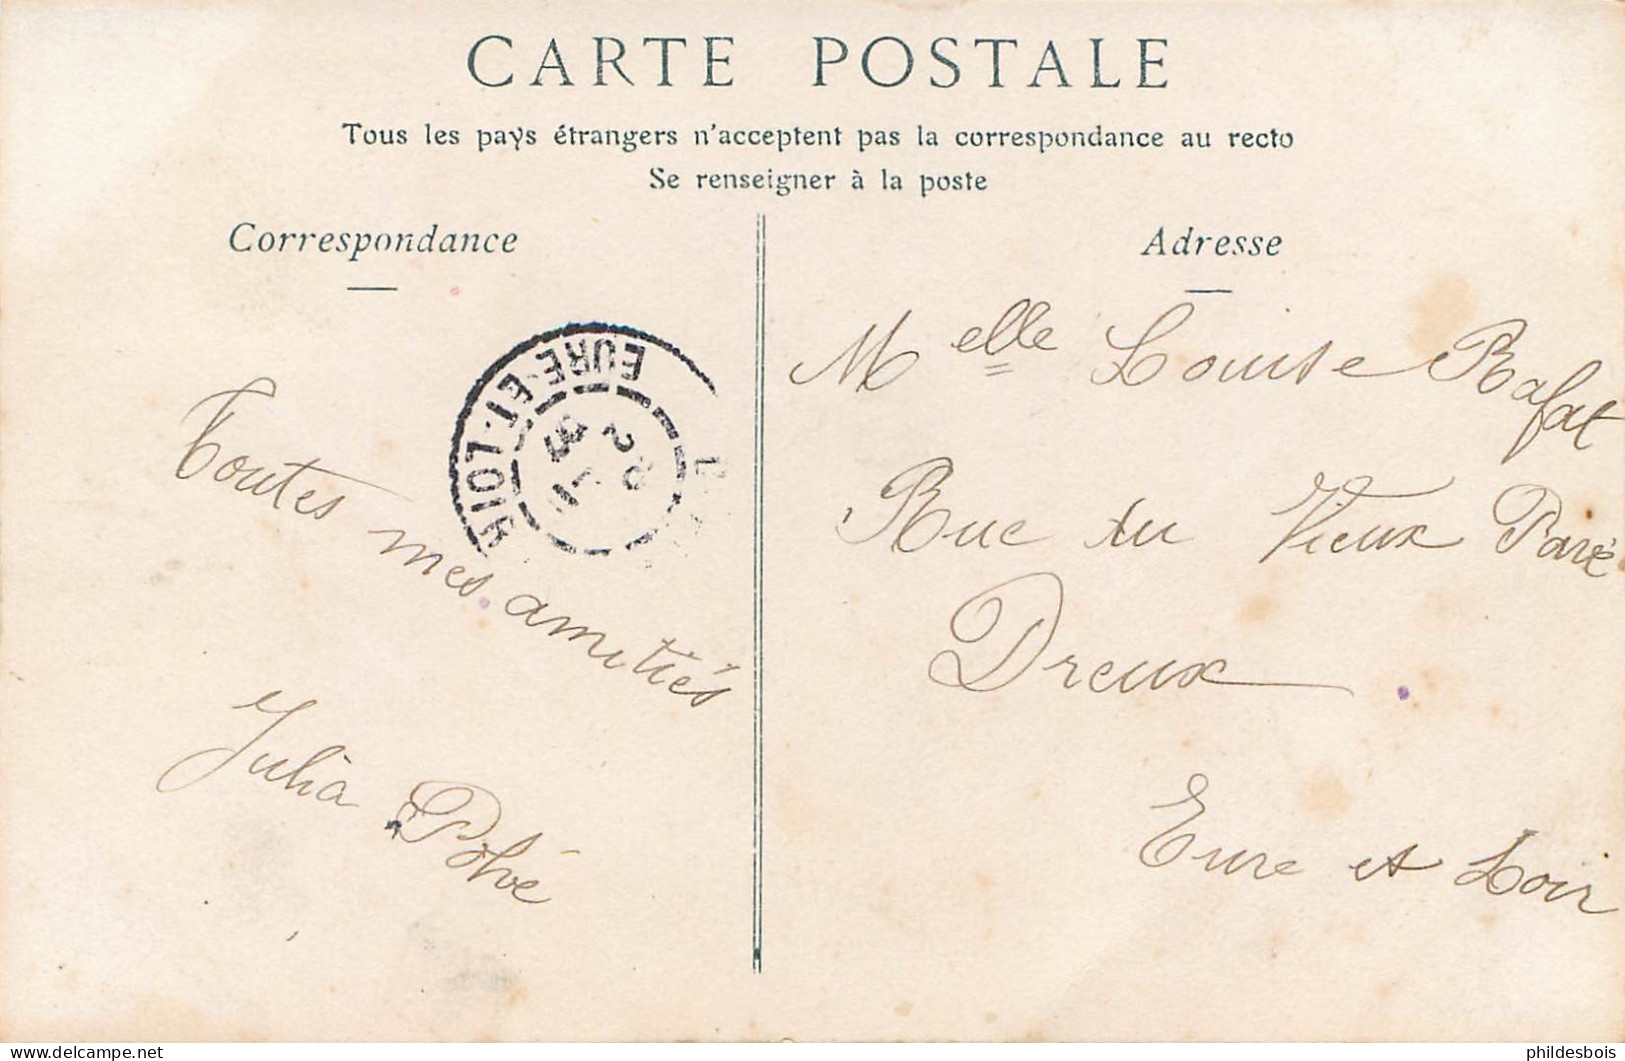 CARTE POSTALE
Tous les pays étrangers n'acceptent pas la correspondance au recto
Se renseigner à la poste
Correspondance
Adresse
Toutes mes amitiés
Julia
Melle Louise Rafat
Rue du Vieux Pavé
Dreux
Eure et Loir
EURE-ET-LOIR
phildesbois